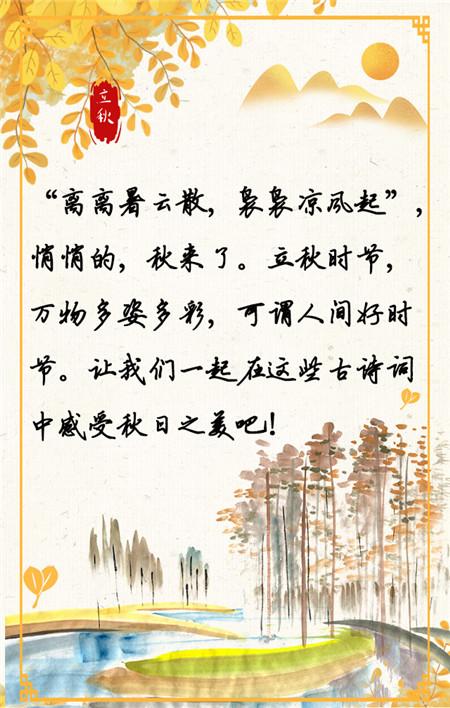 立秋
“离离暑云散，袅袅凉风起”，
悄悄的，秋来了。立秋时节，
万物多姿多彩，可谓人间好时
节。让我们一起在这些古诗词
中感受秋日之美吧！